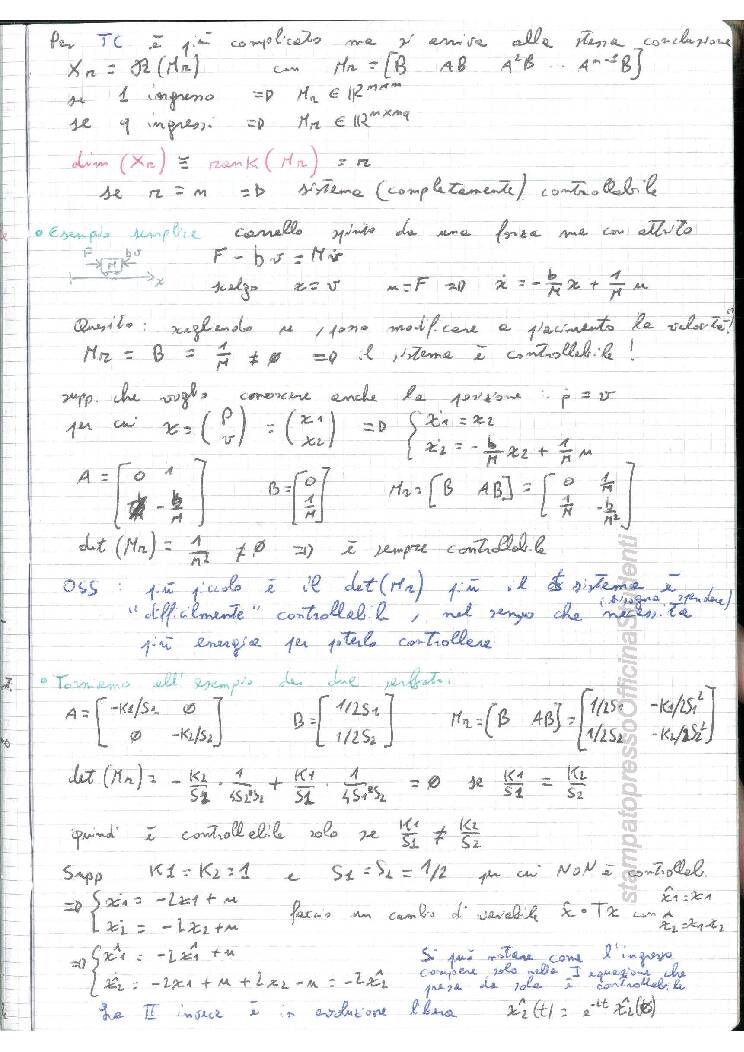 Per TC è più complicato ma si arriva alla stessa conclusione
Xr = R(Mr) con Mr = [B AB A²B ... Aⁿ⁻¹B]
se 1 ingresso => Mr ∈ ℝⁿˣⁿ
se q ingressi => Mr ∈ ℝⁿˣⁿq
dim (Xr) ≅ rank (Mr) = r
se r = n => sistema (completamente) controllabile
• Esempio semplice carrello spinto da una forza ma con attrito
F M bv x
F - bv = Mv̇
scelgo x = v u = F => ẋ = -b/M x + 1/M u
Quesito: scegliendo u, posso modificare a piacimento la velocità?
Mr = B = 1/M ≠ 0 => il sistema è controllabile!
supp. che voglio conoscere anche la posizione: ṗ = v
per cui x = (p v) = (x1 x2) => { ẋ1 = x2
ẋ2 = -b/M x2 + 1/M u
A = [0 1; 0 -b/M] B = [0; 1/M] Mr = [B AB] = [0 1/M; 1/M -b/M²]
det (Mr) = 1/M² ≠ 0 => è sempre controllabile
OSS : più piccolo è il det(Mr) più il sistema è
"difficilmente" controllabile, nel senso che necessita (bisogna spendere)
più energia per poterlo controllare
• Torniamo all'esempio dei due serbatoi
A = [-K1/S1 0; 0 -K2/S2] B = [1/2S1; 1/2S2] Mr = [B AB] = [1/2S1 -K1/2S1²; 1/2S2 -K2/2S2²]
det (Mr) = - K2/S2 · 1/4S1S2 + K1/S1 · 1/4S1S2 = 0 se K1/S1 = K2/S2
quindi è controllabile solo se K1/S1 ≠ K2/S2
Supp K1 = K2 = 1 e S1 = S2 = 1/2 per cui NON è controllab.
=> { ẋ1 = -2x1 + u
ẋ2 = -2x2 + u
faccio un cambio di variabile x̂ = Tx con x̂1 = x1
x̂2 = x1-x2
=> { x̂̇1 = -2x̂1 + u
x̂̇2 = -2x1 + u + 2x2 - u = -2x̂2
Si può notare come l'ingresso
compare solo nella I equazione che
presa da sola è controllabile
La II invece è in evoluzione libera x̂2(t) = e⁻²ᵗ x̂2(0)
stampatopressoOfficinaStudenti